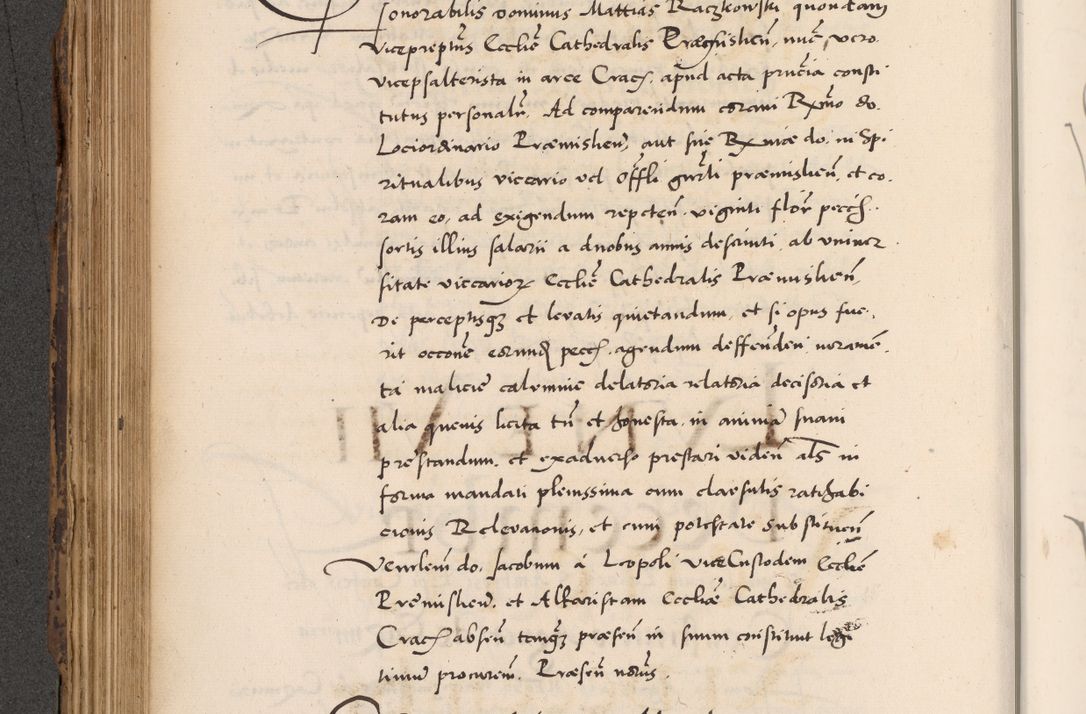 Honorabilis Dominus Mattias Raczkowski quondam
vicepreptus Ecclie Cathedralis Præmislien, nunc vero
vicepsalterista in arce Crac, apud acta prncia consti
tutus personalr. Ad comparendum coram Rxmo do.
Lociordinario Præmislien, aut sue Rxmæ do. in Spi
ritualibus viccario vel Offli gnrli præmislien, et co.
ram eo, ad exigendum repeten. viginti flor pecc.
sortis illius salarii a duobus annis descriuti, ab univer
sitate viccarior Ecclie Cathedralis Præmislien,
De perceptisq et levatis quietandum, et si opus fue.
rit occone earund pecc. agendum deffenden iuramen.
ta malicie calumnie delatoria relatoria decisoria et
alia quevis licita tn et honesta, in animam suam
prestandum, et exadverso prestari viden als in
forma mandati plenissima cum claesulis ratihabi
cionis Relevationis, et cum potestate substituen
Venrlem do. Jacobum a Leopoli viceCustodem Ecclie
Premislien, et Altaristam Ecclie Cathedralis
Crac absen tamq præsen in suum constituit legi
timum procurem. Præsen notus.